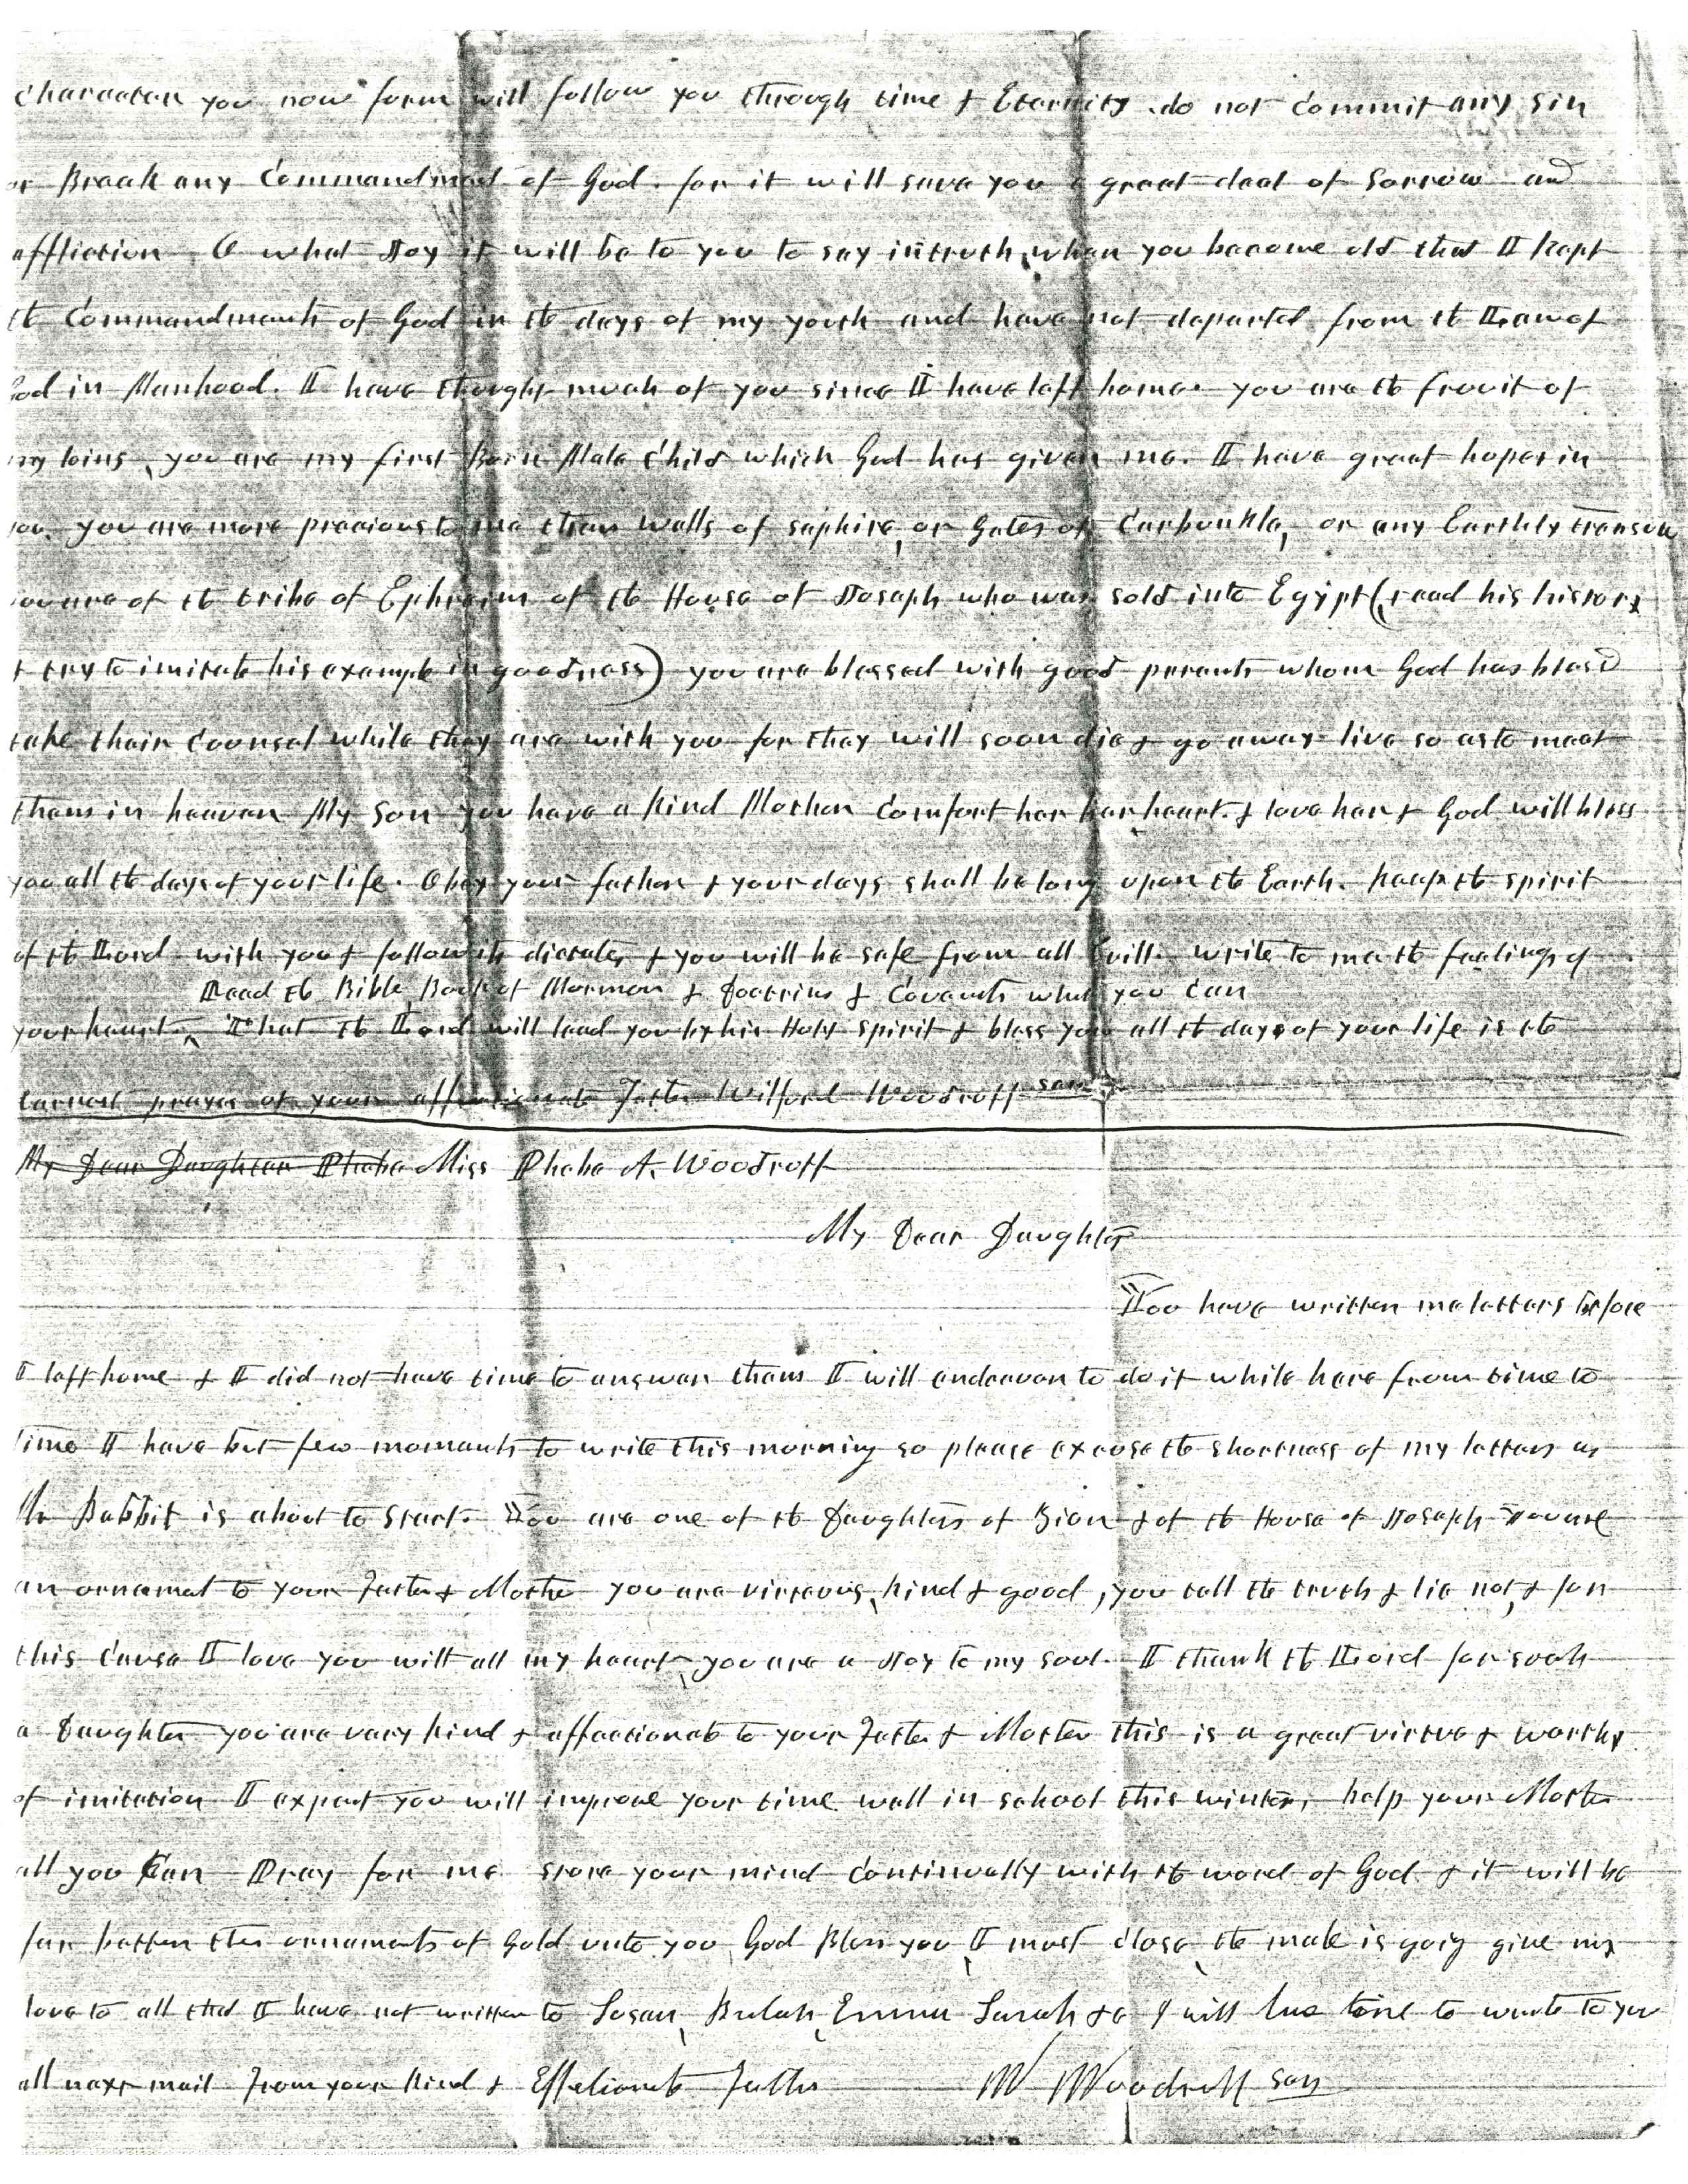 character you now form will follow you through time & Eternity. do not commit any sin
or Break any Commandment of God. for it will save you a great deal of Sorrow and
affliction O what Joy it will be to you to say in truth when you become old that I kept
the Commandments of God in the days of my youth and have not departed from the Law of
God in Manhood. I have thought much of you since I have left home. you are the fruit of
my loins, you are my first Born Male Child which God has given me. I have great hopes in
you. you are more precious to me than walls of saphire, or gates of Carbunkle, or any Earthly treasure
you are of the tribe of Ephraim of the House of Joseph who was sold into Egypt (read his history
& try to imitate his example in goodness) you are blessed with good parents whom God has blesd
take their Counsel while they are with you for they will soon die & go away live so as to meet
them in heaven My Son you have a kind Mother Comfort her her heart. & love her & God will bless
you all the days of your life. Obey your father & your days shall be long upon the Earth. keep the spirit
of the Lord with you & follow its dictates & you will be safe from all Evill. write to me the feelings of
Read the Bible, Book of Mormon & Doctrins & Covenants what you can
your heart. That the Lord will lead you by his Holy Spirit & bless you all the days of your life is the
Earnest prayer of your affectionate Father Wilford Woodruff senr
My Dear Daughter Phebe Miss Phebe A. Woodruff
My Dear Daughter
You have written me letters before
I left home & I did not have time to answer them I will endeavor to do it while here from time to
time I have but few moments to write this morning so please excuse the shortness of my letters as
Mr Babbit is about to Start. You are one of the Daughters of Zion & of the House of Joseph You are
an ornament to your Father & Mother you are virteous, kind & good, you tell the truth & lie not, & for
this Cause I love you with all my heart, you are a Joy to my soul. I thank the Lord for such
a Daughter you are very kind & affectionate to your Father & Mother this is a great virtue & worthy
of imitation I expect you will improve your time well in school this winter, help your Mother
all you Can Pray for me store your mind Continually with the word of God & it will be
far better then ornaments of Gold unto you, God Bless you, I must Close, the male is going give my
love to all that I have not written to Susan, Bulah, Emma Sarah &c I will have time to write to you
all next mail From your kind & Effetionate Father W Woodruff Sen